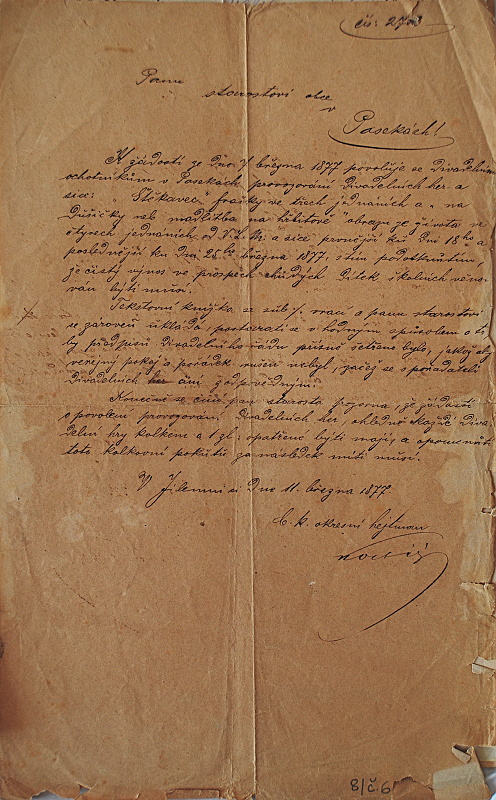 čís: 2703
Panu
starostovi obce
v
Pasekách!
K žádosti ze dne 7 března 1877 povoluje se divadelním
ochotníkům v Pasekách provozování divadelních her a
sice: „Štěkavec“ frašky ve třech jednáních a „na
Dušičky neb modlitba na hřbitově“ obrazu ze života ve
čtyrech jednáních od a sice prvnější ku dni 18ho a
poslednější ku dni 25ho března 1877. s tím podotknutím,
že čistý výnos ve prospěch chudých dítek školních věno-
ván býti musí.
Tekstovní knížka se sub /. vrací a panu starostovi
se zároveň ukládá, postarati se vhodným spůsobem o to
by předpisů divadelního řádu přísně šetřeno bylo, jakož aby
veřejný pokoj a pořádek rušen nebyl, začež se s pořadateli
divadelních her činí zodpovědným.
Konečně se činí pan starosta pozorna, že žádosti
o povolení provozování divadelních her, ohledně každé diva-
delní hry kolkem a 1 zl. opatřeno býti mají, a opomenutí
toto kolkovní pokutu za následek míti musí.
V Jilemnici dne 11. března 1877
C. k. okresní hejtman
8/č.6